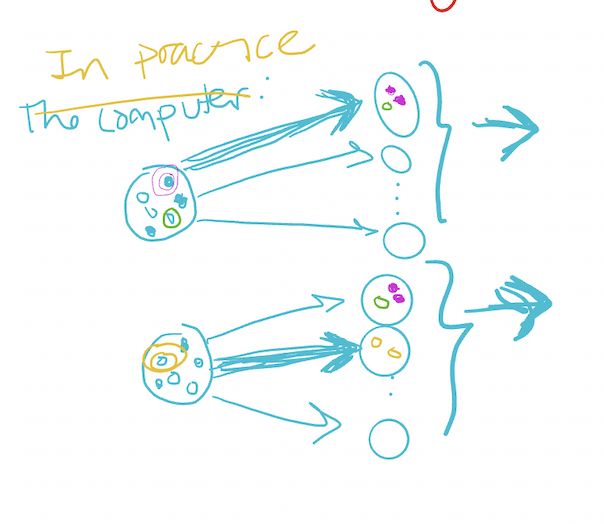 In practice
The computer: